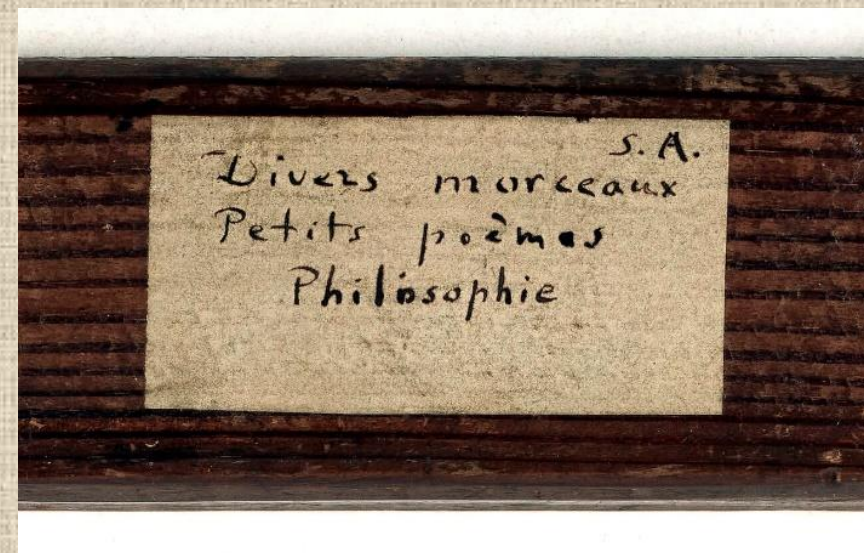 S. A.
Divers morceaux
Petits poèmes
Philosophie